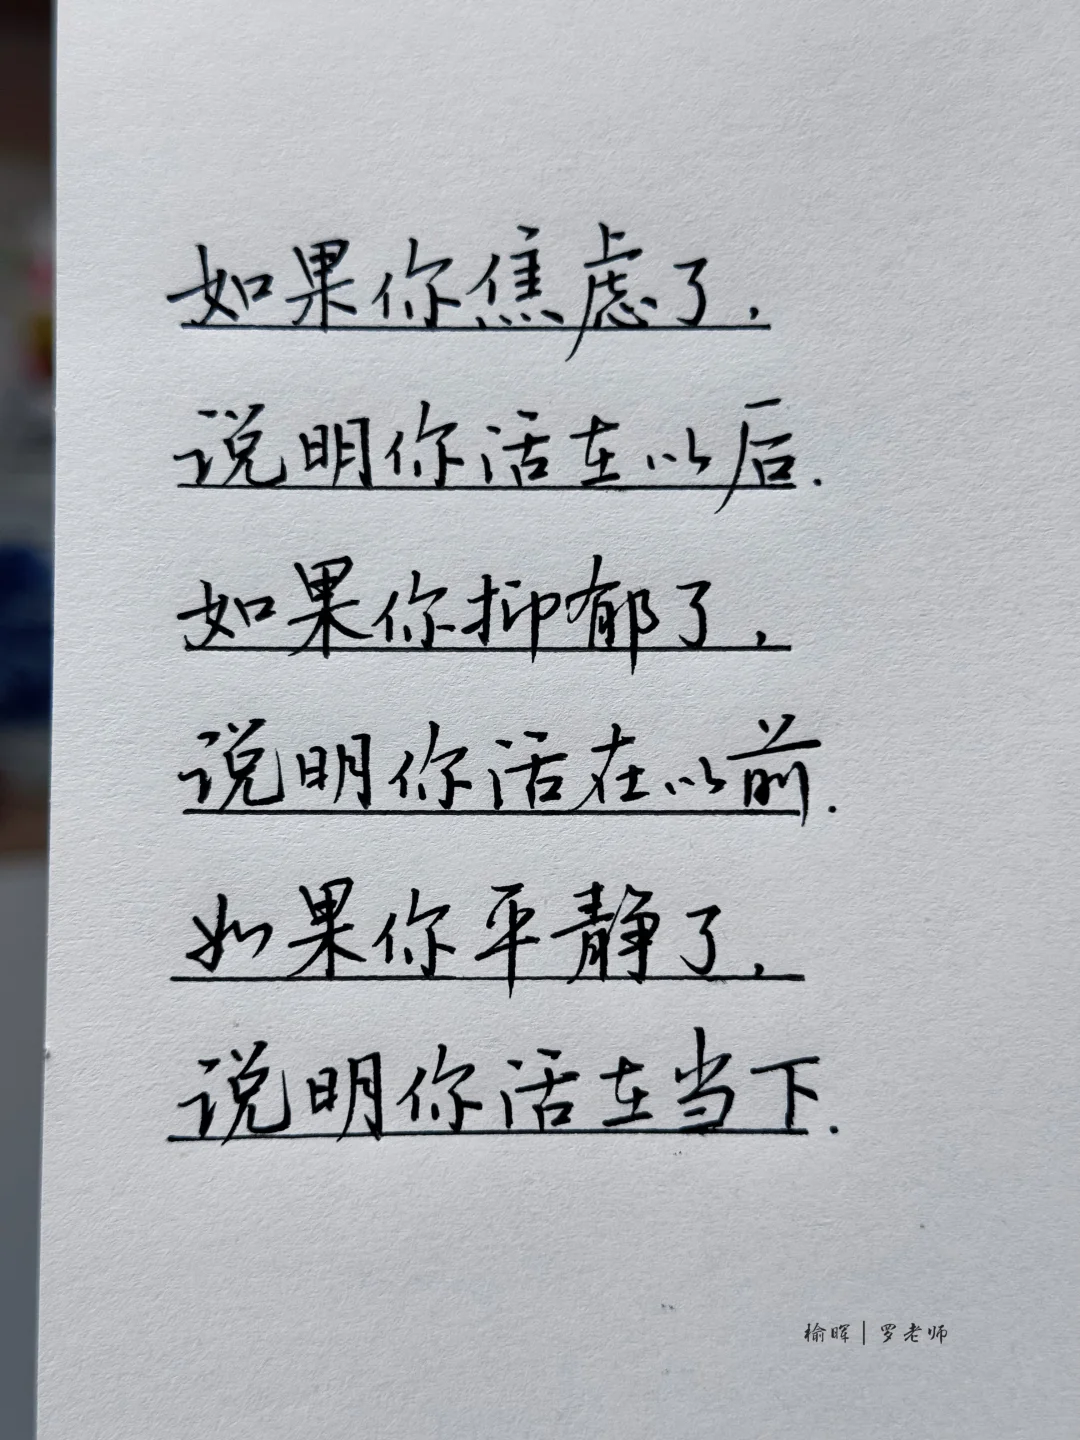 如果你焦虑了,
说明你活在以后.
如果你抑郁了,
说明你活在以前.
如果你平静了,
说明你活在当下.
榆晖|罗老师